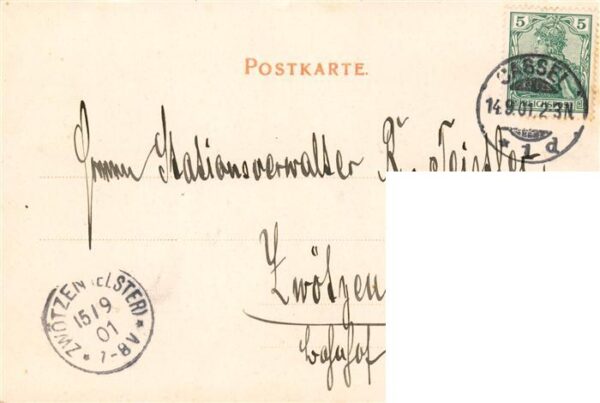 5
POSTKARTE.
CASSEL
14.9.01.2-3N
* 1 d
Herrn Stationsverwalter R.
Zwötzen
Bahnhof
ZWÖTZEN (ELSTER)
15/9
01
* 7-8 V *